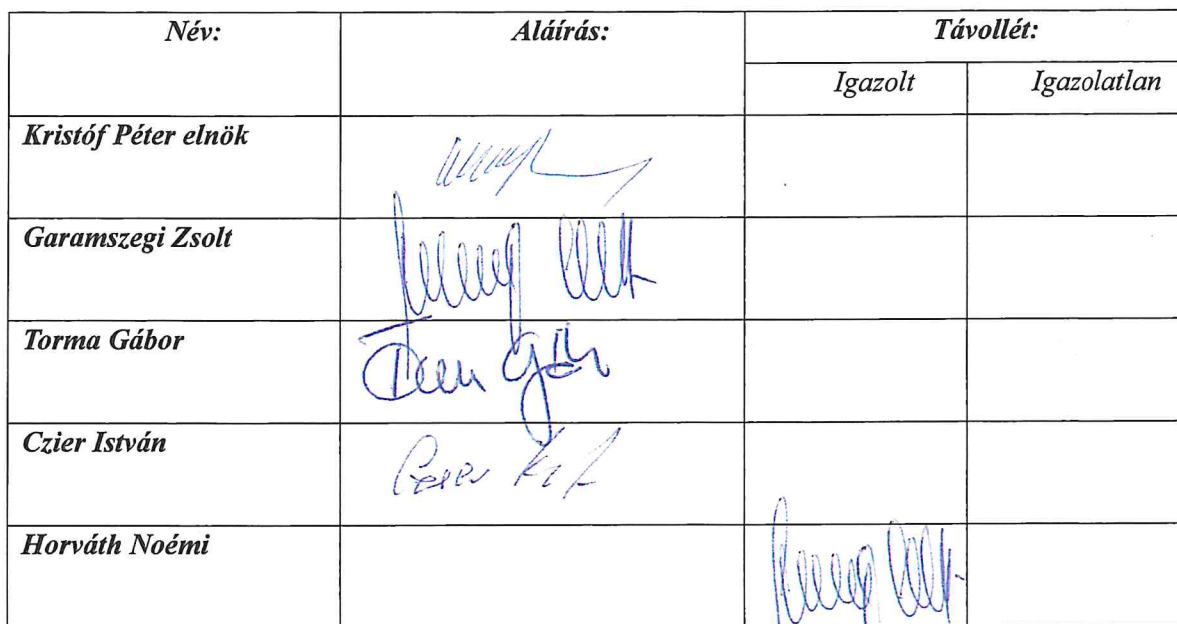 Név: Aláírás: Távollét:
Igazolt Igazolatlan
Kristóf Péter elnök
Garamszegi Zsolt
Torma Gábor
Czier István
Horváth Noémi